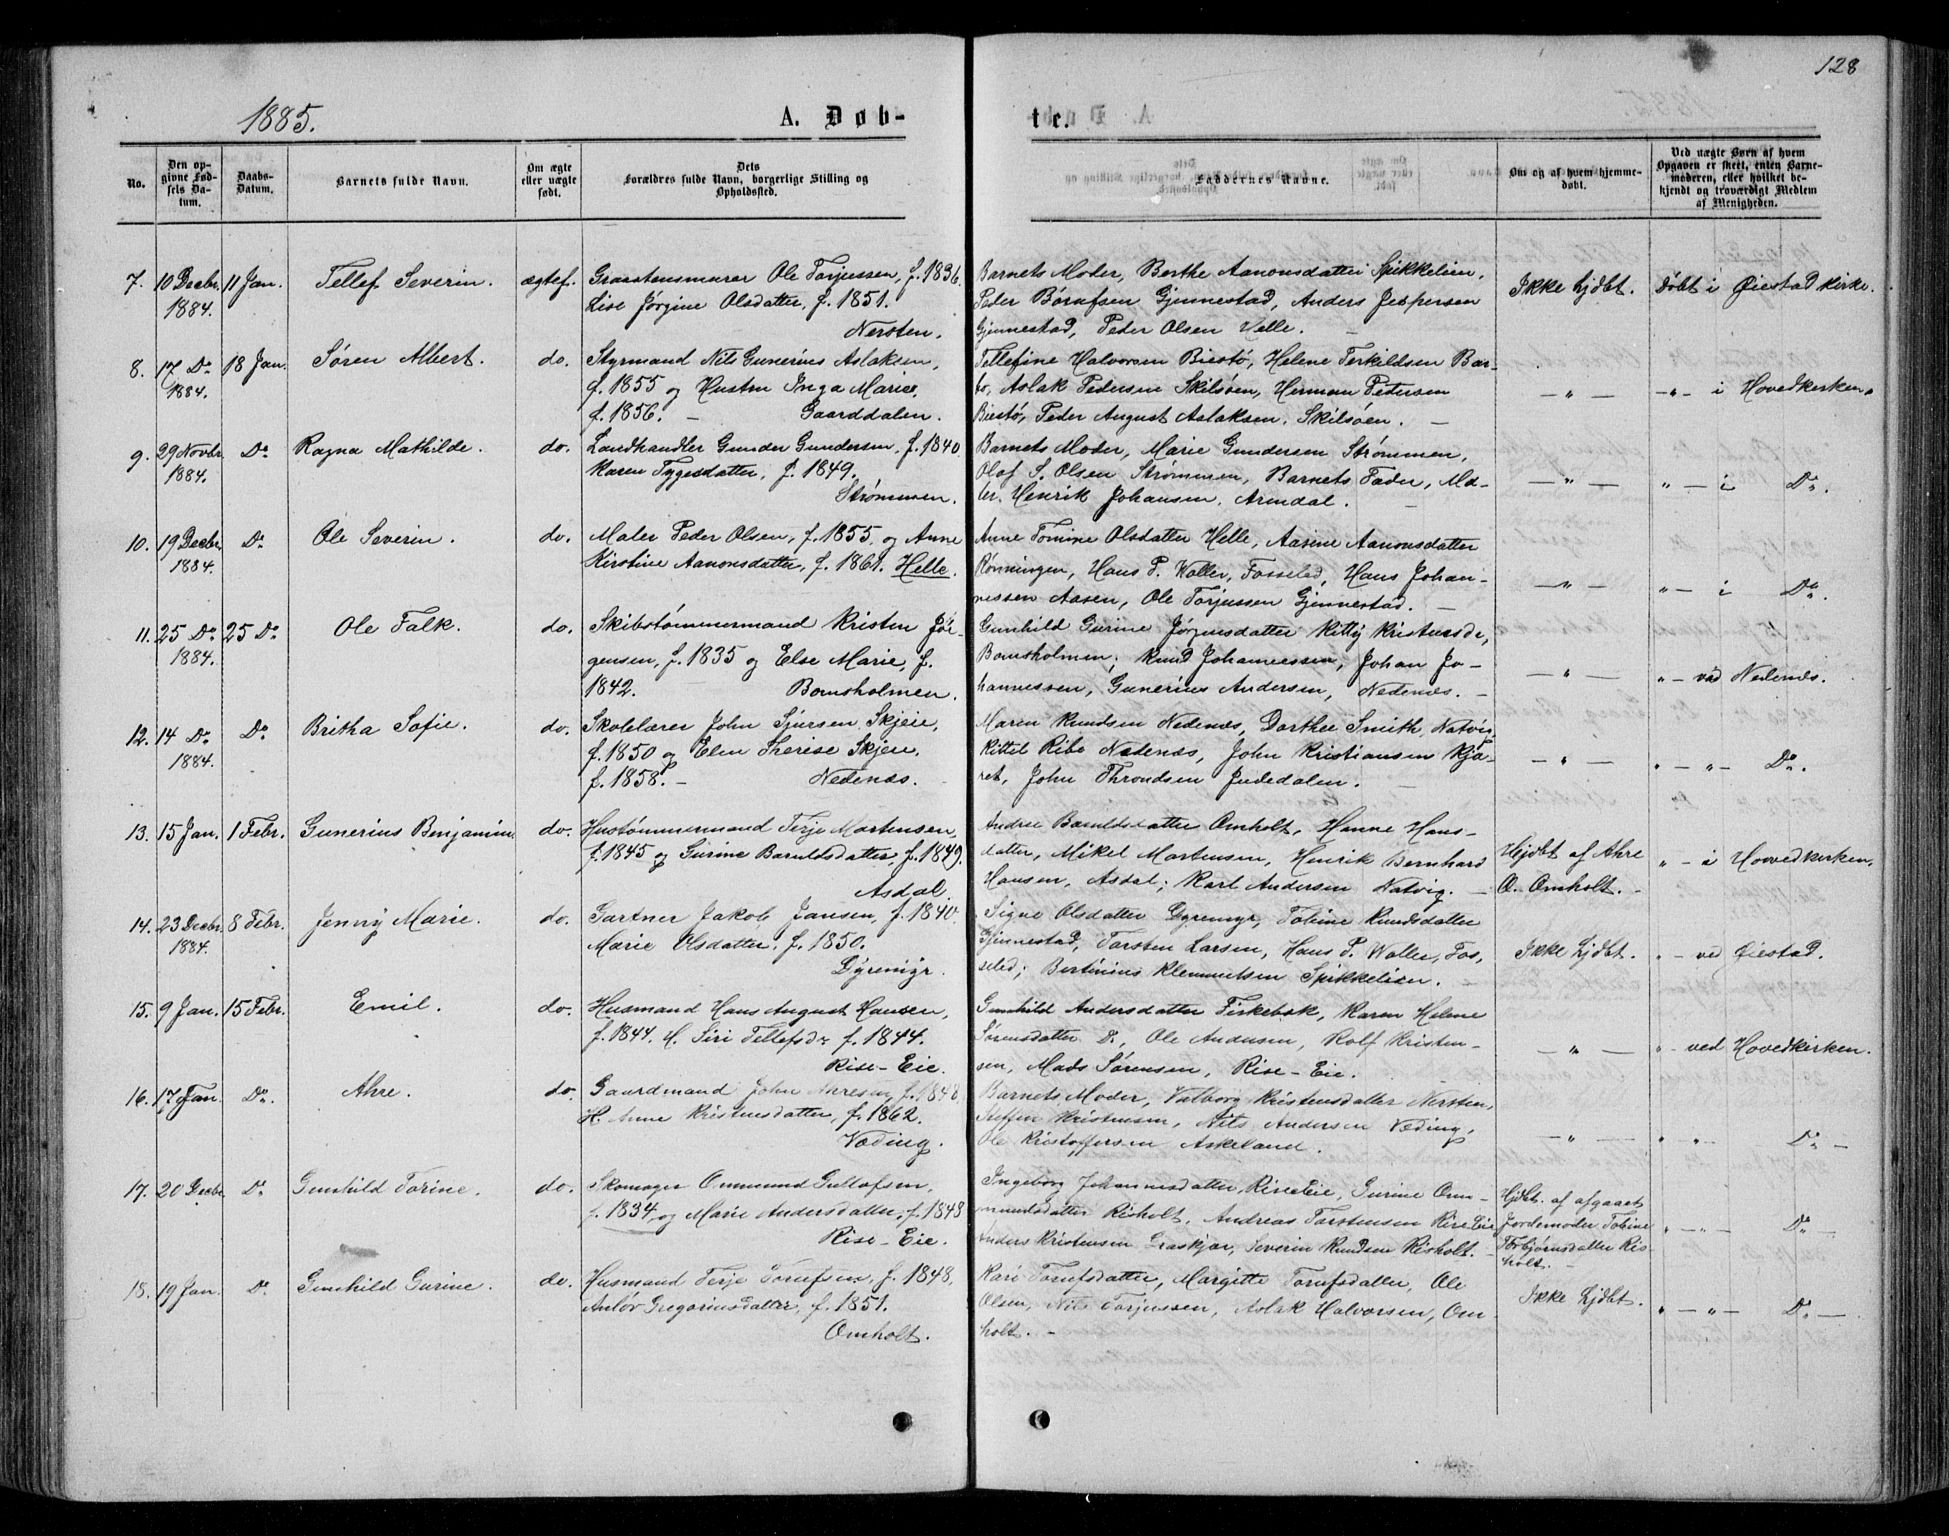 128
1885.
A. Døb-
te.
No.
Den op-
givne Fød-
sels Da-
tum.
Daabs-
Datum.
Barnets fulde Navn.
Om ægte
eller uægte
født.
Dets
Forældres fulde Navn, borgerlige Stilling og
Opholdssted.
Faddernes Navne.
Om og af hvem hjemme-
døbt.
Ved uægte Børn af hvem
Opgaven er skeet, enten Barne-
moderen, eller hvilket be-
kjendt og troværdigt Medlem
af Menigheden.
7. 10 Decbr. 11 Jan. Tellef Severin. ægtef. Graastensmurer Ole Torjussen, f. 1836.
1884. Lise Jørgine Olsdatter, f. 1851.
Nersten.
Barnets Moder, Berthe Aanonsdatter Spikkelien,
Peder Børufsen Gjennestad, Anders Jespersen
Gjennestad, Peder Olsen Velle. –
Ikke hjdbt. Døbt i Øiestad Kirke.
8. 17 Do 18 Jan. Søren Albert. do. Styrmand Nils Gunerius Aslaksen,
1884. f. 1855 og Hustru Inga Marie,
f. 1856. – Gaarddalen.
Tellefine Halvorsen Biestø, Helene Terkildsen Bar-
bo, Aslak Pedersen Skilsøen, Herman Pedersen
Biestø, Peder August Aslaksen, Skilsøen. –
— " — – " – i Hovedkirken.
9. 29 Novbr. Do Ragna Mathilde. do. Landhandler Gunder Gundersen, f. 1840
1884. Karen Tygesdatter, f. 1849.
Strømmen.
Barnets Moder, Marie Gundersen Strømmen,
Olaf S. Olsen Strømmen, Barnets Fader, Ma-
ler Henrik Johansen, Arendal. –
— " — " – i Do.
10. 19 Decbr. Do Ole Severin. do. Maler Peder Olsen, f. 1855 og Anne
1884. Kirstine Aanonsdatter, f. 1861. Helle.
Anne Tomine Olsdatter Helle, Aasene Aanonsdatter
Rønningen, Hans P. Woller, Fosseled, Hans Johan-
nessen Aasen, Ole Torjussen Gjennestad. –
— " — " – i Do.
11. 25 Do 25 Do Ole Falk. do. Skibstømmermand Kristen Jør-
1884. gensen, f. 1835 og Else Marie, f.
1842. Bomsholmen.
Gunhild Gurine Jørgensdatter, Kitty Kristensdr,
Bomsholmen, Knud Johannessen, Johan Jo-
hannessen, Gunerius Andersen, Nedenæs. –
— " — " – ved Nedenæs.
12. 14 Do Do Britha Sofie. do. Skolelærer John Sjursen Skjeie,
1884. f. 1850 og Elen Therese Skjeie,
f. 1858. – Nedenæs.
Maren Knudsen Nedenæs, Dorthee Smith, Natvig,
Kittel Ribe Nedenæs, John Kristiansen Kjæ-
ret, John Throndsen Judedalen.
— " — " – " – Do.
13. 15 Jan. 1 Febr. Gunerius Benjamin. do. Hustømmermand Terje Mortensen,
f. 1845 og Gurine Baruldsdatter, f. 1849.
Asdal.
Andrea Baruldsdatter Omholt, Hanne Hans-
datter, Mikel Mortensen, Henrik Bernhard
Hansen, Asdal; Karl Andersen Natvig. –
Hjdbt af Ahre
O. Omholt. –
" – i Hovedkirken.
14. 23 Decbr. 8 Febr. Jenny Marie. do. Gartner Jakob Jansen, f. 1840.
1884. Marie Olsdatter, f. 1850.
Gyremyr.
Signe Olsdatter Gyremyr, Tobine Knudsdatter
Gjennestad, Torsten Larsen, Hans P. Woller, Fos-
seled; Bertinius Klemmetsen Spikkelien.
Ikke hjdbt. " – ved Øiestad.
15. 9 Jan. 15 Febr. Emil. do. Husmand Hans August Hansen,
f. 1844. H. Siri Tellefsdr f. 1844.
Rise-Eie.
Gunhild Andersdatter Fiskebæk, Karen Helene
Sørensdatter Do, Ole Andersen, Rolf Kristen-
sen, Mads Sørensen, Rise-Eie.
— " — " – ved Hovedkirken.
16. 17 Jan. Do. Ahre. do. Gaardmand John Ahresen, f. 1848
H. Anne Kristensdatter, f. 1862.
Væding.
Barnets Moder, Valborg Kristensdatter Nersten,
Steffen Kristensen, Nils Andersen Væding,
Ole Kristoffersen Askeland.
— " — " " – Do –
17. 20 Decbr Do Gunhild Torine. do. Skomager Ommund Gullofsen,
f. 1834 og Marie Andersdatter, f. 1848
Rise-Eie.
Ingeborg Johannesdatter, Rise Eie, Gurine Om-
mundsdatter Risholt, Andreas Torstensen Rise Eie
Anders Kristensen Graskjær, Severin Knudsen Risholt. –
Hjdbt. af afgaaet
Jordemoder Tobine
Torbjørnsdatter Ris-
holt. –
" – " – Do –
18. 19 Jan. Do. Gunhild Gurine. do. Husmand Terje Torufsen, f. 1848,
Anlør Gregoriusdatter, f. 1851.
Omholt.
Kari Torufsdatter, Margitte Torufsdatter, Ole
Olsen, Nils Torjussen, Aslak Halvorsen, Om-
holt. –
Ikke hjdbt. " – " – Do –